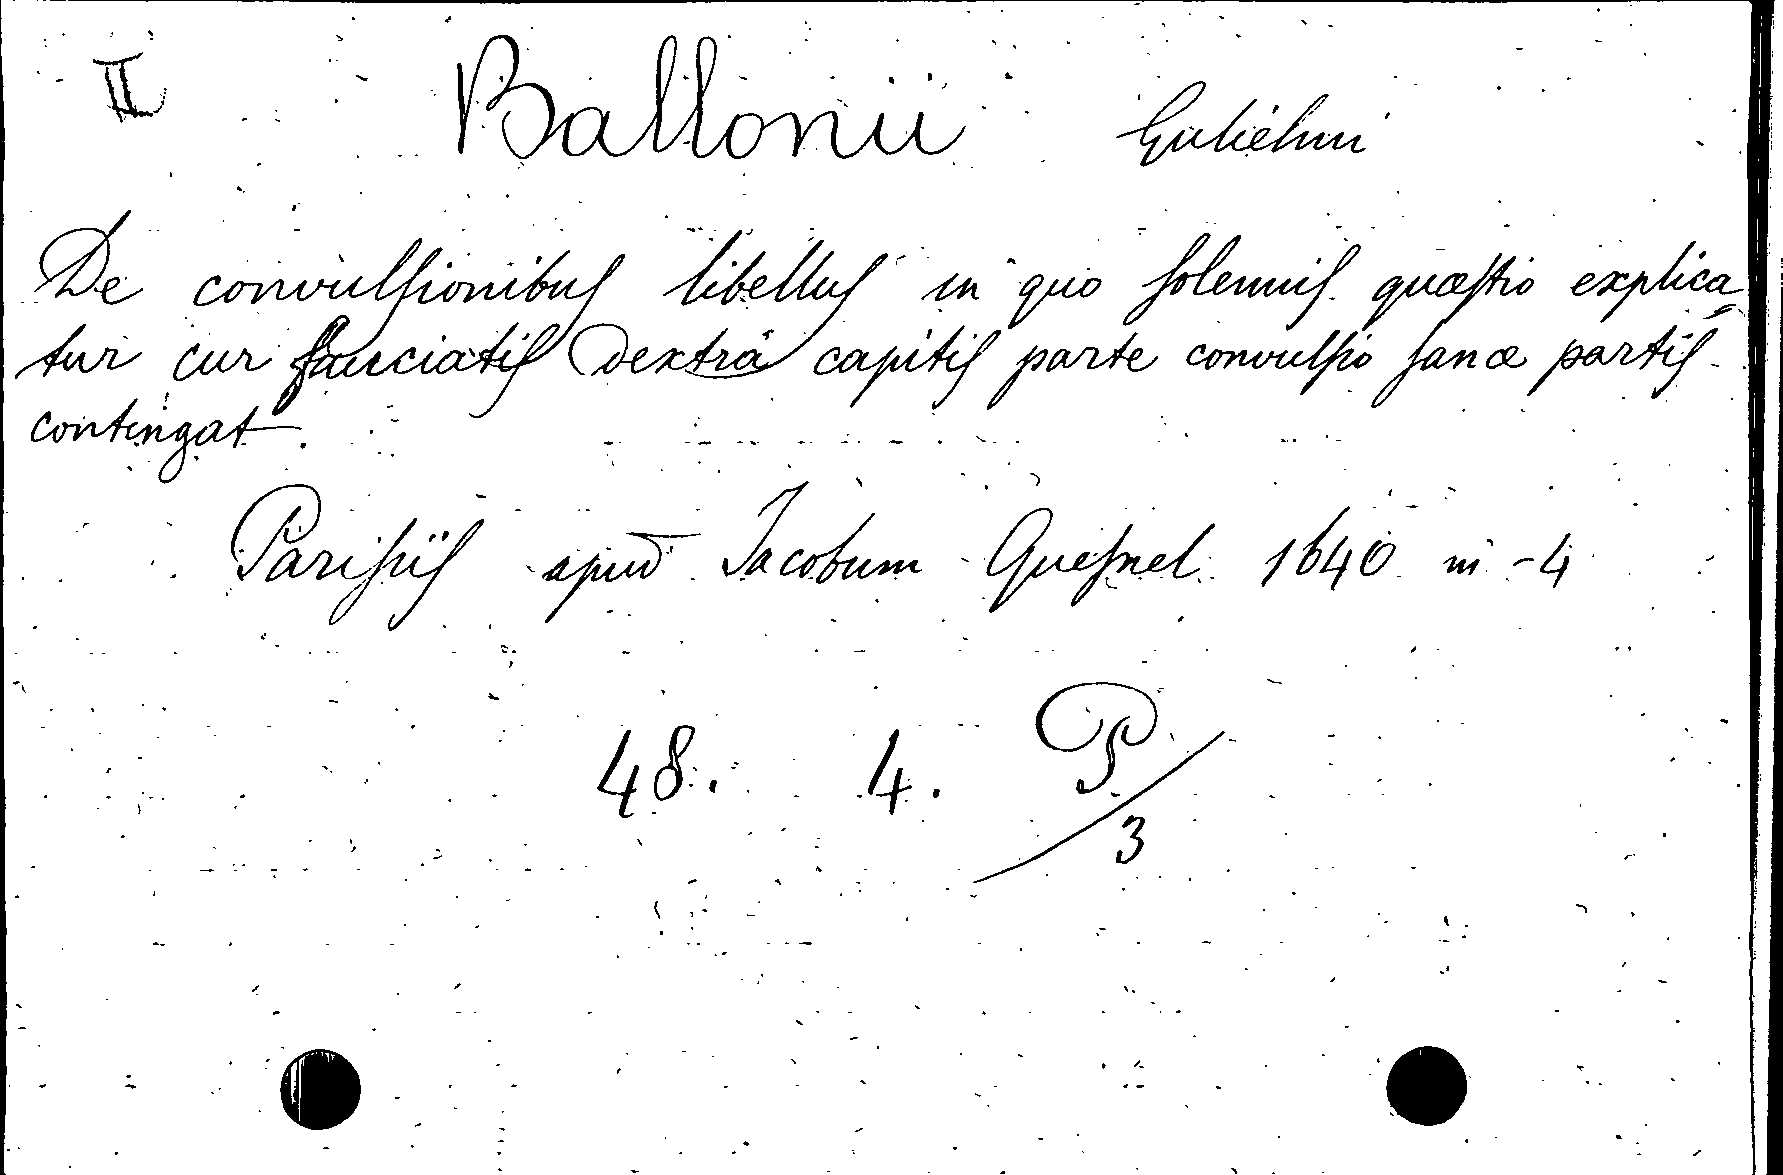 II Ballonii Gulielmi
De convulsionibus libellus in quo solemnis quæstio explica-
tur cur sauciatis dextrâ capitis parte convulsio sanæ partis
contingat.
Parisiis apud Jacobum Quesnel 1640 in-4
48. 4. P
3